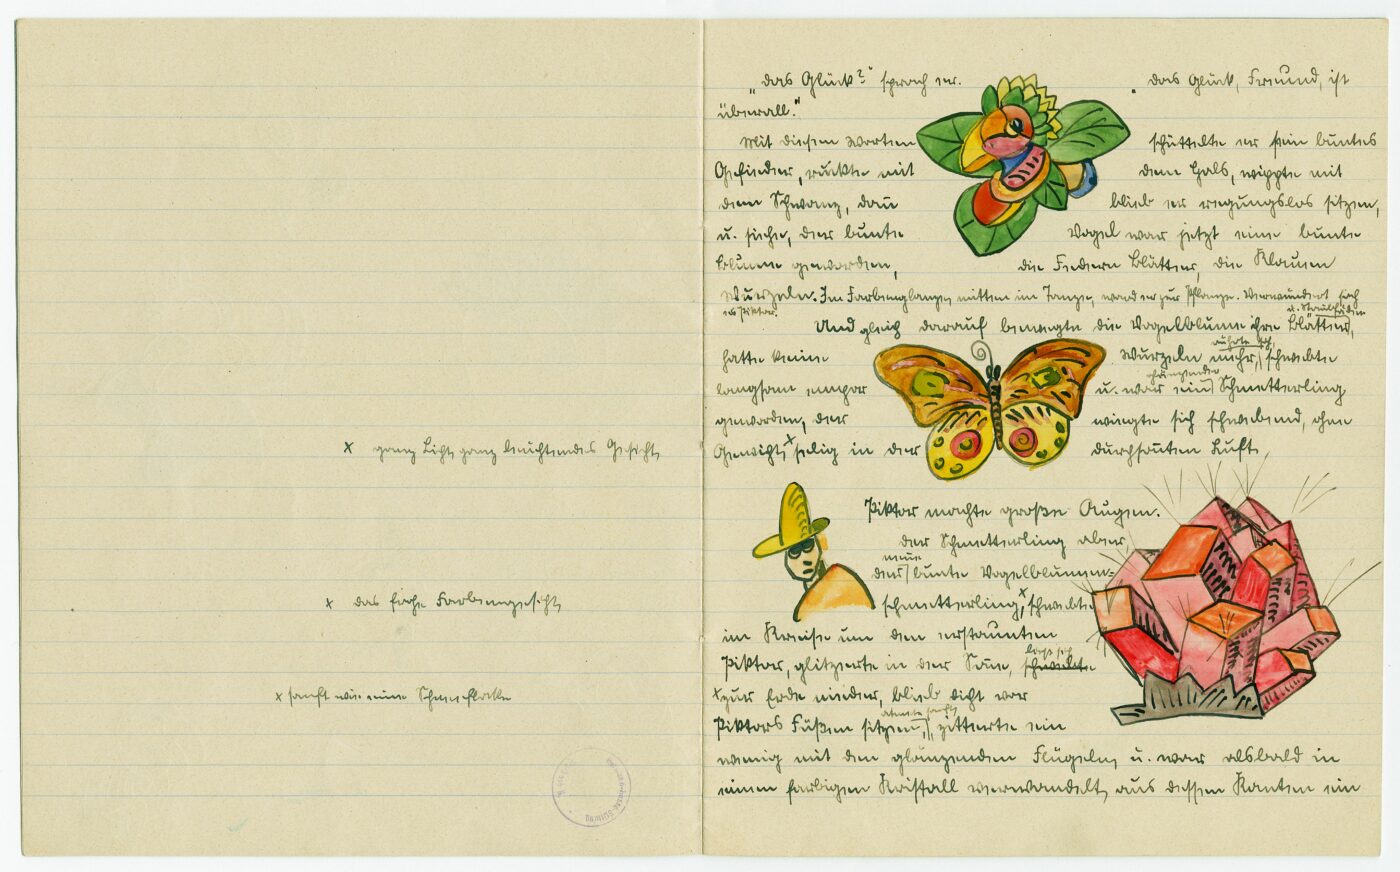 x ganz Licht, ganz leuchtendes Gesicht,
x das frohe Farbengesicht,
x sanft wie eine Schneeflocke
„das Glück?" sprach er. „das Glück, Freund, ist
überall."
Mit diesen Worten schüttelte er sein buntes
Gefieder, ruckte mit dem Hals, wippte mit
dem Schwanz, dan blieb er regungslos sitzen,
u. siehe, der bunte Vogel war jetzt eine bunte
Blume geworden, die Federn Blätter, die Klauen
Wurzeln. Im Farbenglanze, mitten im Tanze, ward er zur Pflanze. Verwundert sah
es Piktor.
u. Staubfäden
Und gleich darauf bewegte die Vogelblume ihre Blätter,
hatte keine Wurzeln mehr, schwebte
rührte sich,
glänzender
langsam empor u. war ein Schmetterling
geworden, der wiegte sich schwebend, ohne
Gewicht, x selig in der durchsonten Luft.
Piktor machte große Augen.
der Schmetterling aber,
neue
der bunte Vogelblumen-
schmetterling, x schwebte
im Kreise um den erstaunten
ließ sich
Piktor, glitzerte in der Sone, schwebte
x zur Erde nieder, blieb dicht vor
atmete sanft,
Piktors Füßen sitzen, zitterte ein
wenig mit den glänzenden Flügeln, u. war alsbald in
einen farbigen Kristall verwandelt, aus dessen Kanten ein